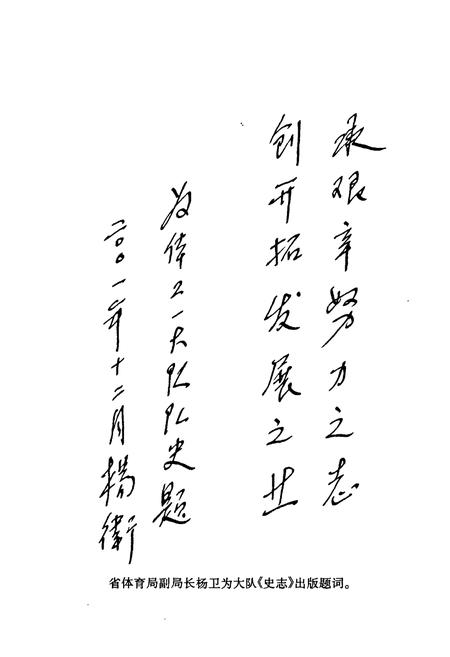 承艰辛努力之志
创开拓发展之业
为体工一大队队史题
二〇〇一年十二月楊衛
省体育局副局长杨卫为大队《史志》出版题词。